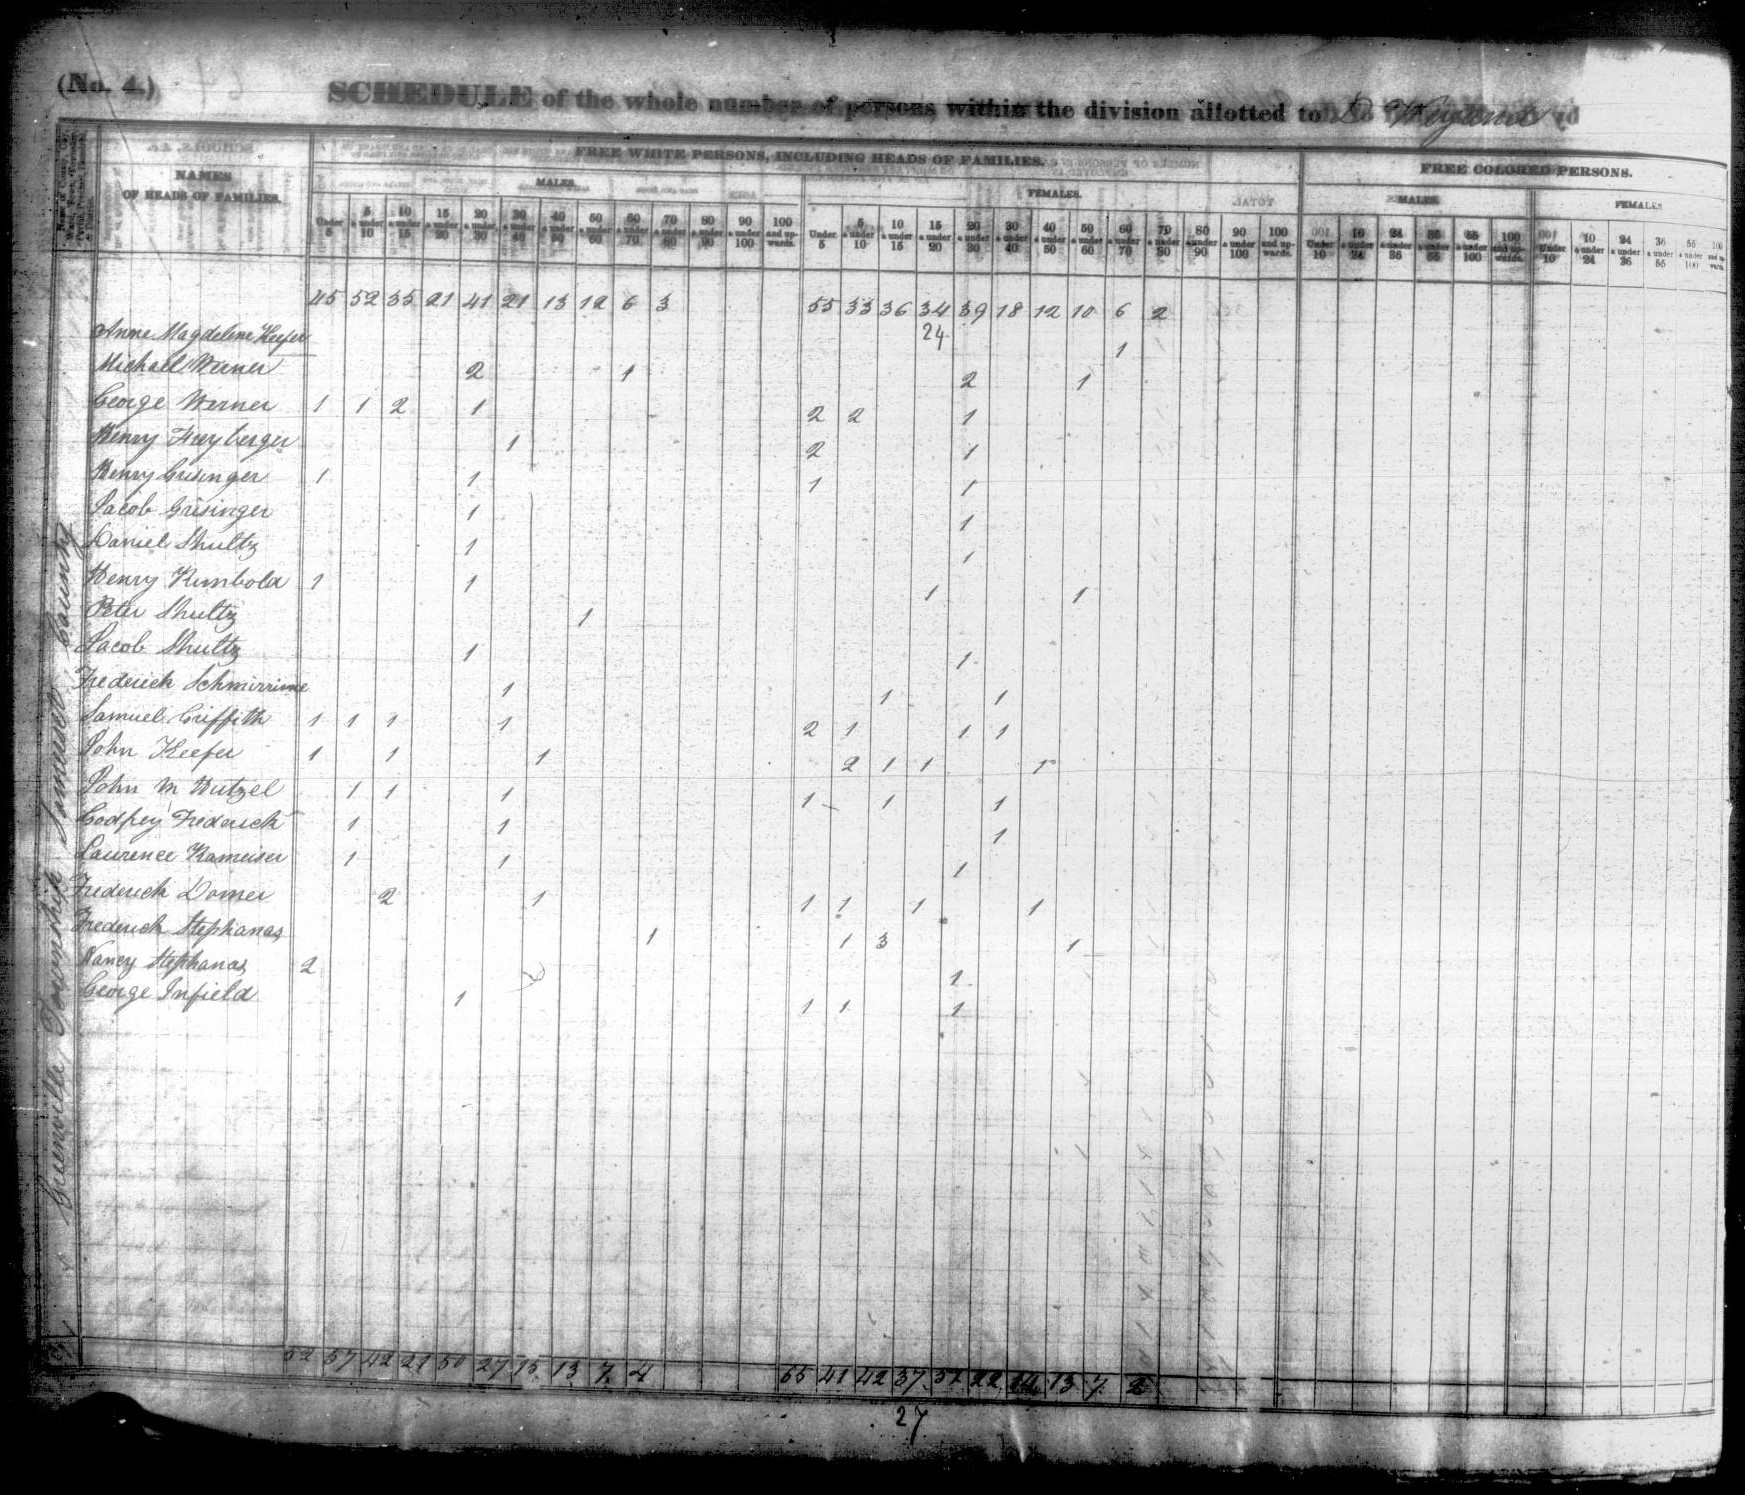 (No. 4.)
SCHEDULE of the whole number of persons within the division allotted to
NAMES OF HEADS OF FAMILIES.
FREE WHITE PERSONS, INCLUDING HEADS OF FAMILIES.
FREE COLORED PERSONS.
MALES. FEMALES. MALES. FEMALES
Under 5 5 & under 10 10 & under 15 15 & under 20 20 & under 30 30 & under 40 40 & under 50 50 & under 60 60 & under 70 70 & under 80 80 & under 90 90 & under 100 100 and up-wards. Under 5 5 & under 10 10 & under 15 15 & under 20 20 & under 30 30 & under 40 40 & under 50 50 & under 60 60 & under 70 70 & under 80 80 & under 90 90 & under 100 100 and up-wards. Under 10 10 & under 24 24 & under 36 36 & under 55 55 & under 100 100 and up-wards. Under 10 10 & under 24 24 & under 36 36 & under 55 55 & under 100
45 52 35 21 41 21 13 12 6 3 55 33 36 34 39 18 12 10 6 2
24
Anne Magdelene Keefer 1
Michael Werner 2 1 2 1
George Werner 1 1 2 1 2 2 1
Henry Freyberger 1 2 1
Henry Grisinger 1 1 1 1
Jacob Grisinger 1 1
Daniel Shultz 1 1
Henry Rumbold 1 1 1 1
Peter Shultz 1
Jacob Shultz 1 1
Frederick 1 1 1
Samuel Griffith 1 1 1 1 2 1 1 1
John Keefer 1 1 1 2 1 1 1
John M Hutzel 1 1 1 1 1 1
Godfrey Frederick 1 1 1
Laurence 1 1 1
Frederick Domer 2 1 1 1 1 1
Frederick Stephanas 1 1 3 1
Nancy Stephanas 2 1
George Infield 1 1 1 1
Greenville Township Somerset County
52 57 42 21 50 27 15 13 7 4 65 41 42 37 51 22 14 13 7 2
27